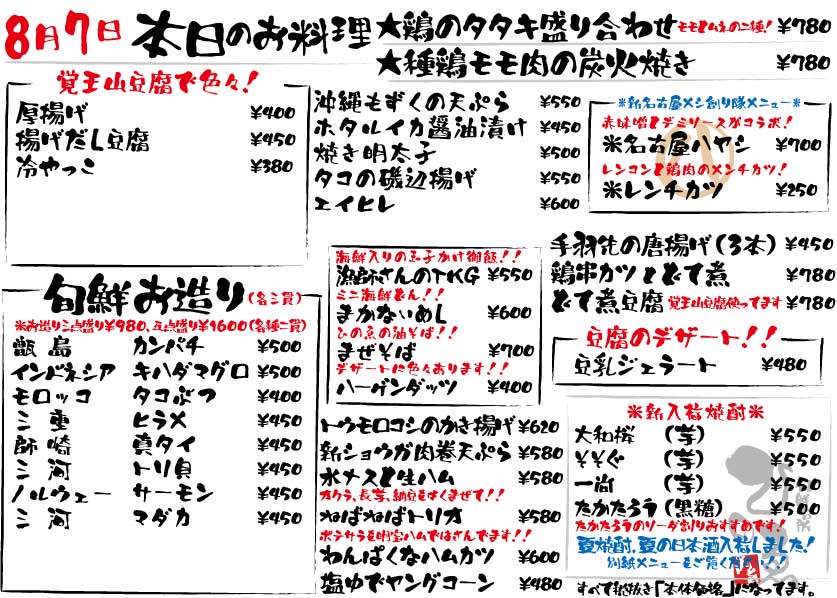 8月7日 本日のお料理
★鶏のタタキ盛り合わせ モモとムネの二種! ¥780
★種鶏モモ肉の炭火焼き ¥780
覚王山豆腐で色々!
厚揚げ ¥400
揚げだし豆腐 ¥450
冷やっこ ¥380
沖縄もずくの天ぷら ¥550
ホタルイカ醤油漬け ¥450
焼き明太子 ¥500
タコの磯辺揚げ ¥550
エイヒレ ¥600
※新名古屋メシ創り隊メニュー※
赤味噌とデミソースがコラボ!
※名古屋ハヤシ ¥700
レンコンと鶏肉のメンチカツ!
※レンチカツ ¥250
旬鮮お造り(各三貫)
※お造り三点盛り¥980、五点盛り¥1600(各種二貫)
甑島 カンパチ ¥500
インドネシア キハダマグロ ¥500
モロッコ タコぶつ ¥400
三重 ヒラメ ¥450
師崎 真タイ ¥450
三河 トリ貝 ¥450
ノルウェー サーモン ¥450
三河 マダカ ¥450
海鮮入りの玉子かけ御飯!!
漁師さんのTKG ¥550
ミニ海鮮どん!!
まかないめし ¥600
ひの魚の油そば!!
まぜそば ¥700
デザートに色々あります!!
ハーゲンダッツ ¥400
トウモロコシのかき揚げ ¥620
新ショウガ肉巻天ぷら ¥580
水ナスと生ハム ¥580
オクラ、長芋、納豆をよくまぜて!!
ねばねばトリオ ¥580
ポテサラを明宝ハムではさんでます!
わんぱくなハムカツ ¥600
塩ゆでヤングコーン ¥480
手羽先の唐揚げ(3本) ¥450
鶏串カツとどて煮 ¥780
どて煮豆腐 覚王山豆腐使ってます ¥780
豆腐のデザート!!
豆乳ジェラート ¥480
※新入荷焼酎※
大和桜 (芋) ¥550
そそぐ (芋) ¥550
一尚 (芋) ¥550
たかたろう(黒糖) ¥500
たかたろうのソーダ割りおすすめです!
夏焼酎、夏の日本酒入荷しました!
別紙メニューをご覧ください!!
すべて税抜き「本体価格」になってます。